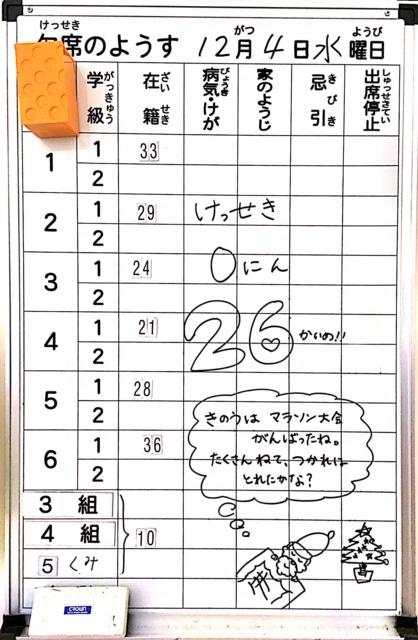 けっせき がつ ようび
欠席のようす 12月4日水曜日
学級 がっきゅう
在籍 ざいせき
病気・けが びょうき
家のようじ
忌引 きびき
出席停止 しゅっせきてい
1 1 33
2
2 1 29 けっせき
2
3 1 24 0にん
2
4 1 21 26 かいめ!!
2
5 1 28
2
6 1 36
2
きのうは マラソン大会
がんばったね。
たくさんねて、つかれは
とれたかな?
3 組
4 組 10
5 くみ
CROWN